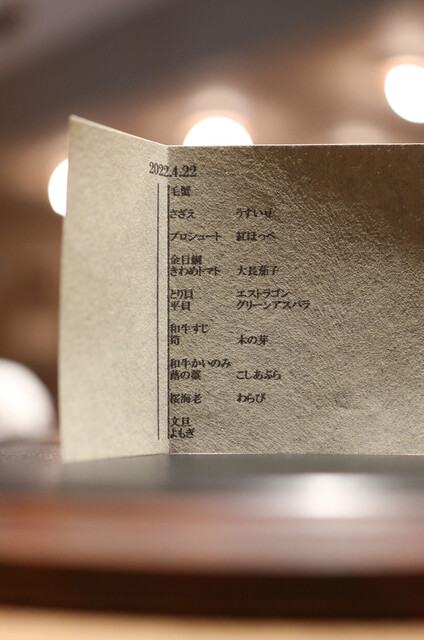 2022.4.22
毛蟹
さざえ　うすいせ
プロシュート　紅ほっぺ
金目鯛
きわめトマト　大長茄子
とり貝　エストラゴン
平貝　グリーンアスパラ
和牛すじ
筍　木の芽
和牛かいのみ
蕗の薹　こしあぶら
桜海老　わらび
文旦
よもぎ